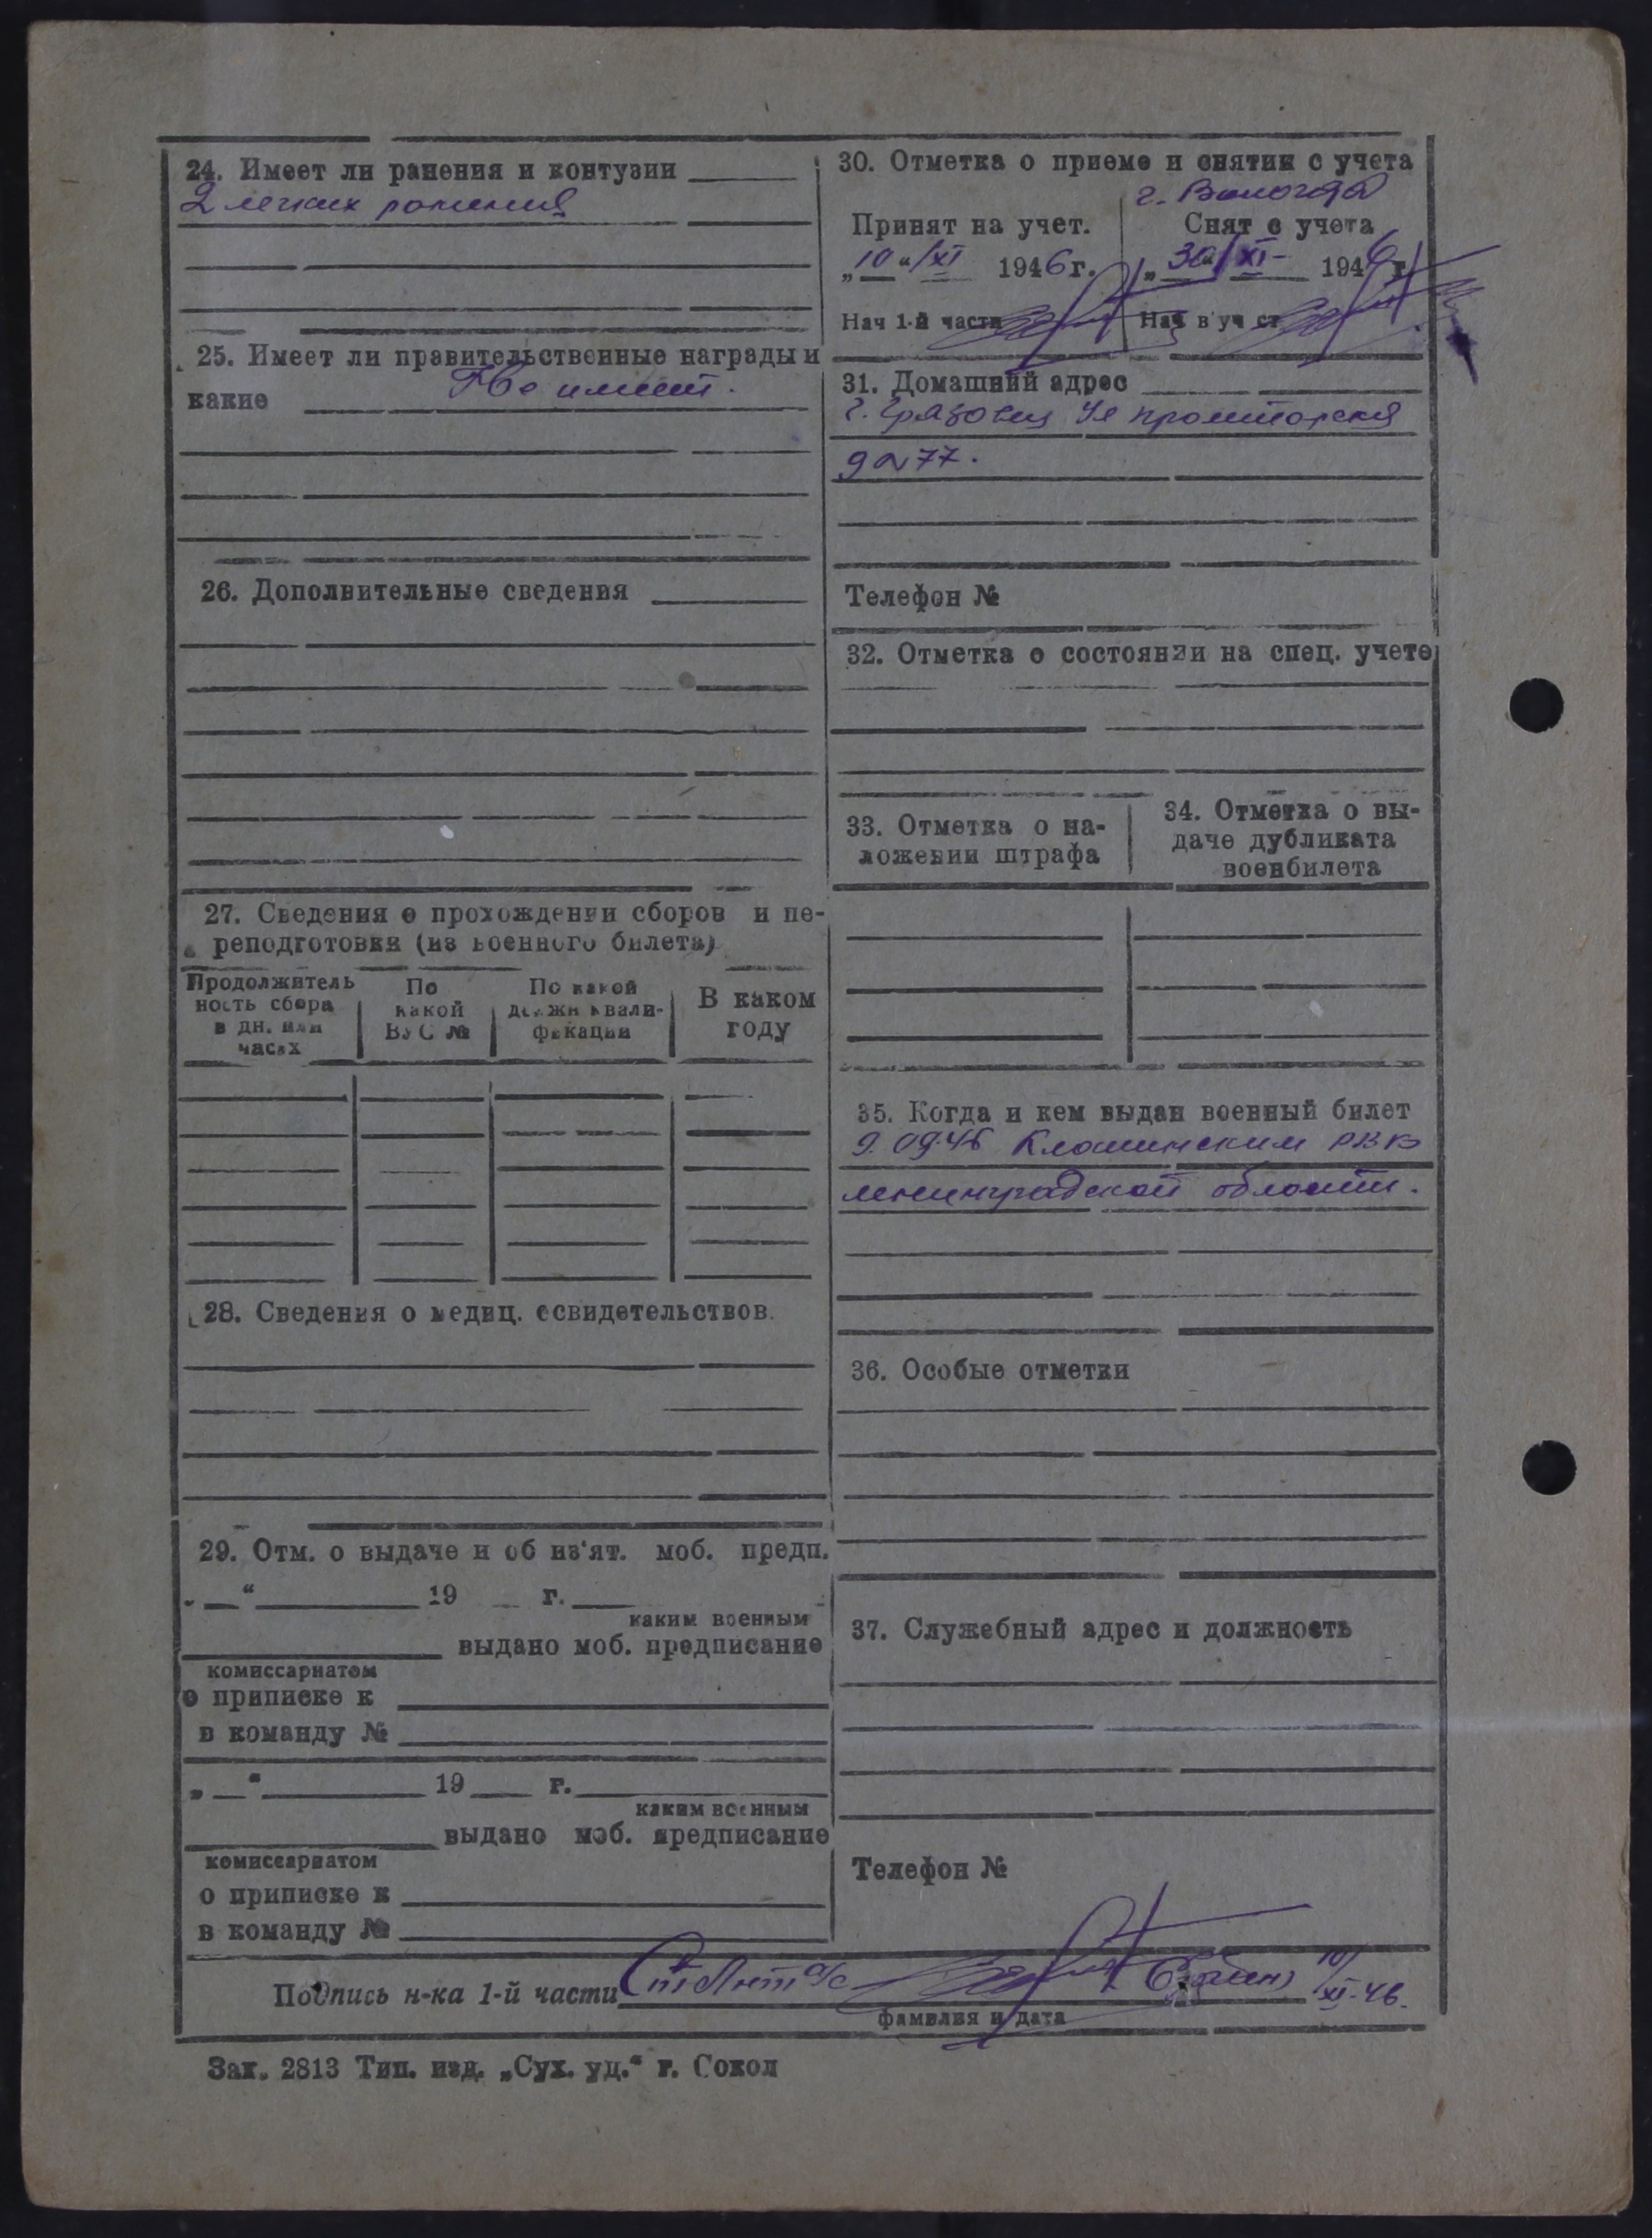 24. Имеет ли ранения и контузии
2 легких ранения
25. Имеет ли правительственные награды и
какие Не имеет.
26. Дополнительные сведения
27. Сведения о прохождении сборов и пе-
реподготовки (из военного билета)
Продолжитель
ность сбора
в дн. или
часах
По
какой
ВУС №
По какой
должн квали-
фикации
В каком
году
28. Сведения о медиц. освидетельствов.
29. Отм. о выдаче и об из'ят. моб. предп.
„ “ 19 г.
каким военным
выдано моб. предписание
комиссариатом
о приписке к
в команду №
„ “ 19 г.
каким военным
выдано моб. предписание
комиссариатом
о приписке к
в команду №
30. Отметка о приеме и снятии с учета
г. Вологда
Принят на учет.
„10“/XI 1946 г.
Нач 1-й части
Снят с учета
„30“/XI- 1946 г.
Нач в уч ст
31. Домашний адрес
г. Грязовец Ул
д № 77.
Телефон №
32. Отметка о состоянии на спец. учете
33. Отметка о на-
ложении штрафа
34. Отметка о вы-
даче дубликата
военбилета
35. Когда и кем выдан военный билет
9.09.46 РВК
Ленинградской области.
36. Особые отметки
37. Служебный адрес и должность
Телефон №
Подпись н-ка 1-й части 10/XI-46.
фамилия и дата
Зак. 2813 Тип. изд. „Сух. уд.“ г. Сокол